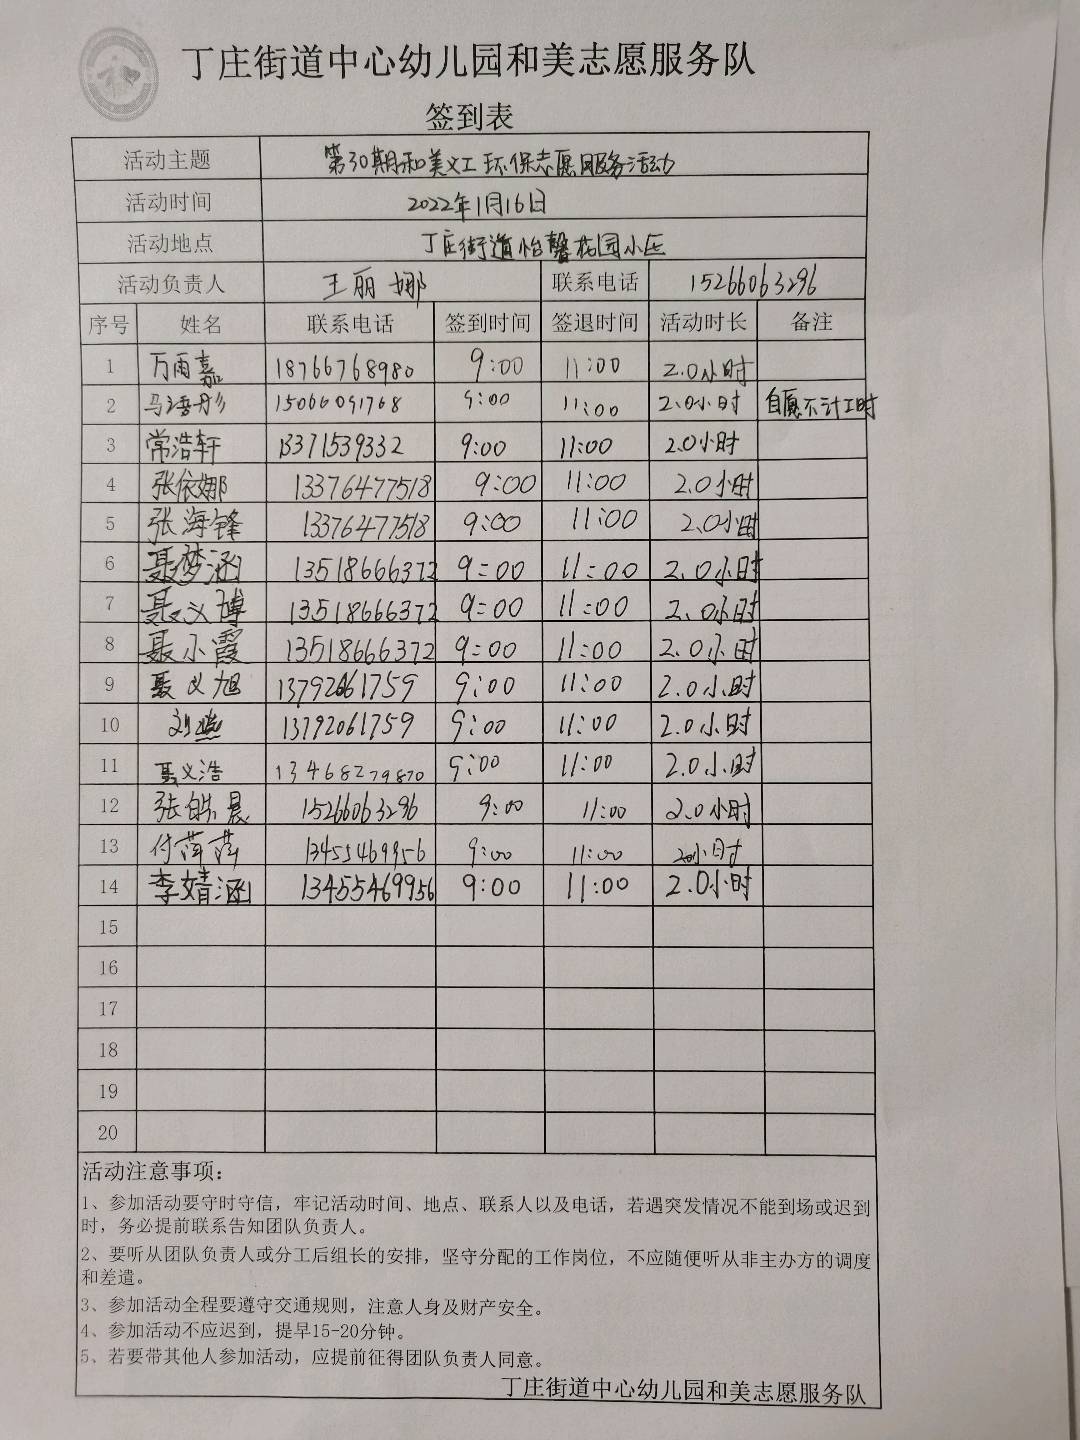 丁庄街道中心幼儿园和美志愿服务队
签到表
活动主题 第30期和美义工环保志愿服务活动
活动时间 2022年1月16日
活动地点 丁庄街道怡馨花园小区
活动负责人 王丽娜 联系电话 15266063296
序号 姓名 联系电话 签到时间 签退时间 活动时长 备注
1 万雨嘉 18766768980 9:00 11:00 2.0小时
2 15066091768 9:00 11:00 2.0小时 自愿不计工时
3 常浩轩 13371539332 9:00 11:00 2.0小时
4 张依娜 13376477518 9:00 11:00 2.0小时
5 张海锋 13376477518 9:00 11:00 2.0小时
6 聂梦涵 13518666372 9:00 11:00 2.0小时
7 聂义博 13518666372 9:00 11:00 2.0小时
8 聂小霞 13518666372 9:00 11:00 2.0小时
9 聂义旭 13792061759 9:00 11:00 2.0小时
10 刘燕 13792061759 9:00 11:00 2.0小时
11 聂义浩 13468279870 9:00 11:00 2.0小时
12 张皓晨 15266063296 9:00 11:00 2.0小时
13 付萍萍 13455469956 9:00 11:00 2.0小时
14 李婧涵 13455469956 9:00 11:00 2.0小时
15
16
17
18
19
20
活动注意事项：
1、参加活动要守时守信，牢记活动时间、地点、联系人以及电话，若遇突发情况不能到场或迟到
时，务必提前联系告知团队负责人。
2、要听从团队负责人或分工后组长的安排，坚守分配的工作岗位，不应随便听从非主办方的调度
和差遣。
3、参加活动全程要遵守交通规则，注意人身及财产安全。
4、参加活动不应迟到，提早15-20分钟。
5、若要带其他人参加活动，应提前征得团队负责人同意。
丁庄街道中心幼儿园和美志愿服务队